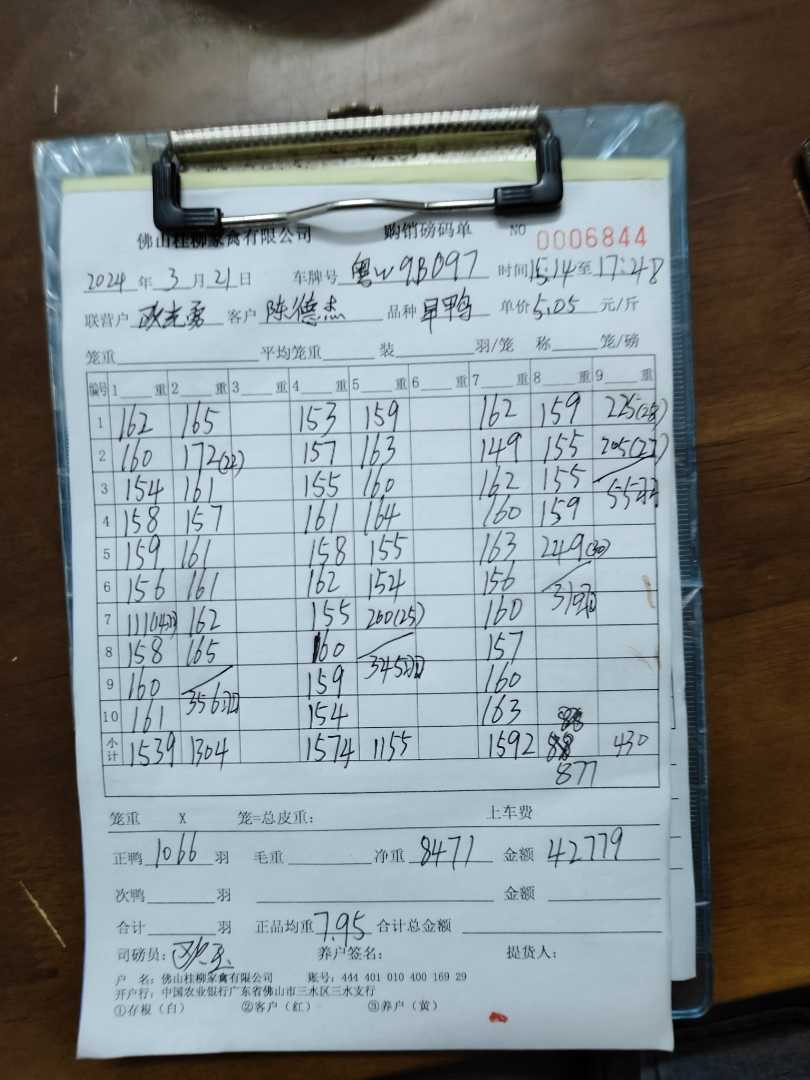 佛山桂柳家禽有限公司 购销磅码单 NO 0006844
2024 年 3 月 21 日 车牌号 粤W9B097 时间 15:14 至 17:48
联营户 客户 陈德杰 品种 旱鸭 单价 5.05 元/斤
笼重 平均笼重 装 羽/笼 称 笼/磅
编号 1 重 2 重 3 重 4 重 5 重 6 重 7 重 8 重 9 重
1 162 165 153 159 162 159 225(28)
2 160 172(22) 157 163 149 155 205(27)
3 154 161 155 160 162 155 55羽
4 158 157 161 164 160 159
5 159 161 158 155 163 249(30)
6 156 161 162 154 156 319羽
7 111(14羽) 162 155 200(25) 160
8 158 165 160 345羽 157
9 160 356羽 159 160
10 161 154 163
小计 1539 1304 1574 1155 1592 430
877
笼重 X 笼=总皮重: 上车费
正鸭 1066 羽 毛重 净重 8471 金额 42779
次鸭 羽 金额
合计 羽 正品均重 7.95 合计总金额
司磅员: 养户签名: 提货人:
户 名: 佛山桂柳家禽有限公司 账号: 444 401 010 400 169 29
开户行: 中国农业银行广东省佛山市三水区三水支行
①存根（白） ②客户（红） ③养户（黄）